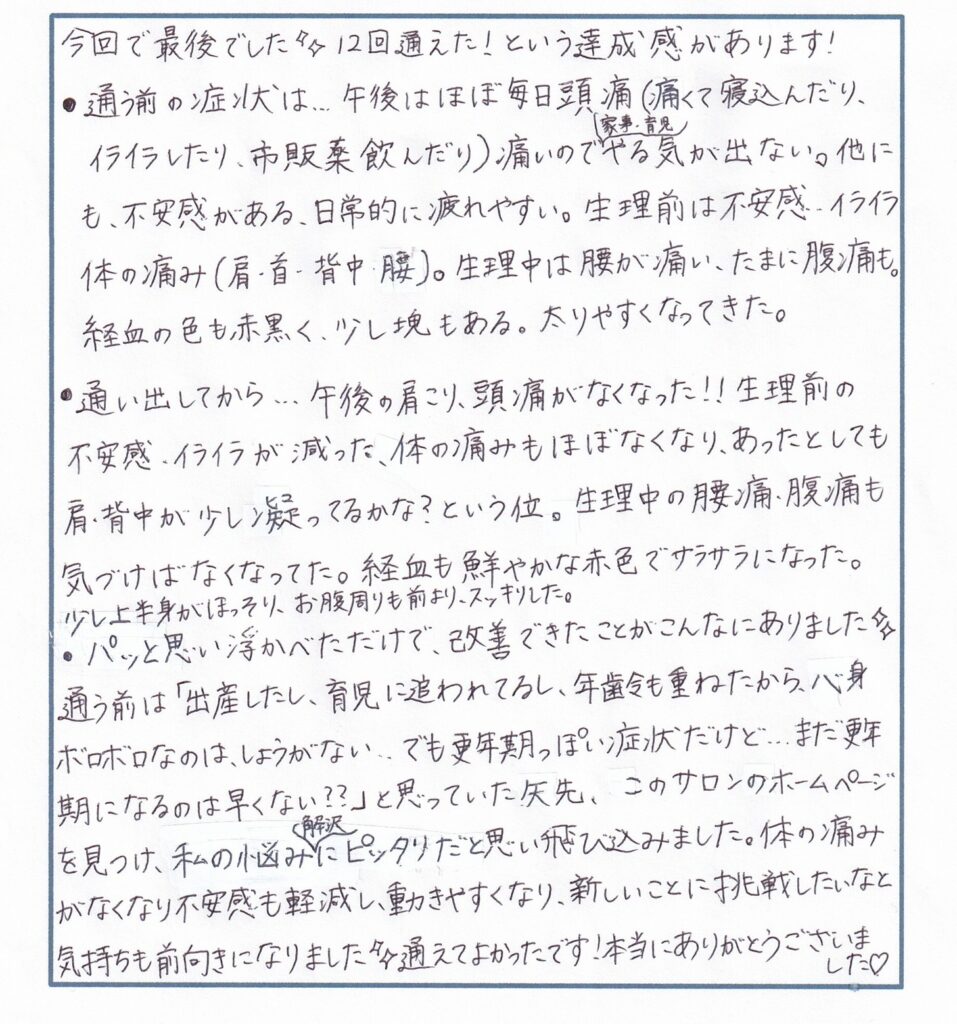 今回で最後でした✨12回通えた!という達成感があります!
●通う前の症状は…午後はほぼ毎日頭痛(痛くて寝込んだり、
家事・育児
イライラしたり、市販薬飲んだり)痛いのでやる気が出ない。他に
も、不安感がある、日常的に疲れやすい。生理前は不安感…イライラ
体の痛み(肩・首・背中・腰)。生理中は腰が痛い、たまに腹痛も。
経血の色も赤黒く、少し塊もある。太りやすくなってきた。
●通い出してから…午後の肩こり、頭痛がなくなった!!生理前の
不安感、イライラが減った、体の痛みもほぼなくなり、あったとしても
肩・背中が少し凝ってるかな?という位。生理中の腰痛・腹痛も
気づけばなくなってた。経血も鮮やかな赤色でサラサラになった。
少し上半身がほっそり、お腹周りも前より、スッキリした。
●パッと思い浮かべただけで、改善できたことがこんなにありました✨
通う前は「出産したし、育児に追われてるし、年齢も重ねたから、心身
ボロボロなのは、しょうがない…でも更年期っぽい症状だけど…まだ更年
期になるのは早くない??」と思っていた矢先、このサロンのホームページ
解決
を見つけ、私の悩みにピッタリだと思い飛び込みました。体の痛み
がなくなり不安感も軽減し、動きやすくなり、新しいことに挑戦したいなと
気持ちも前向きになりました✨通えてよかったです!本当にありがとうございま
した♡